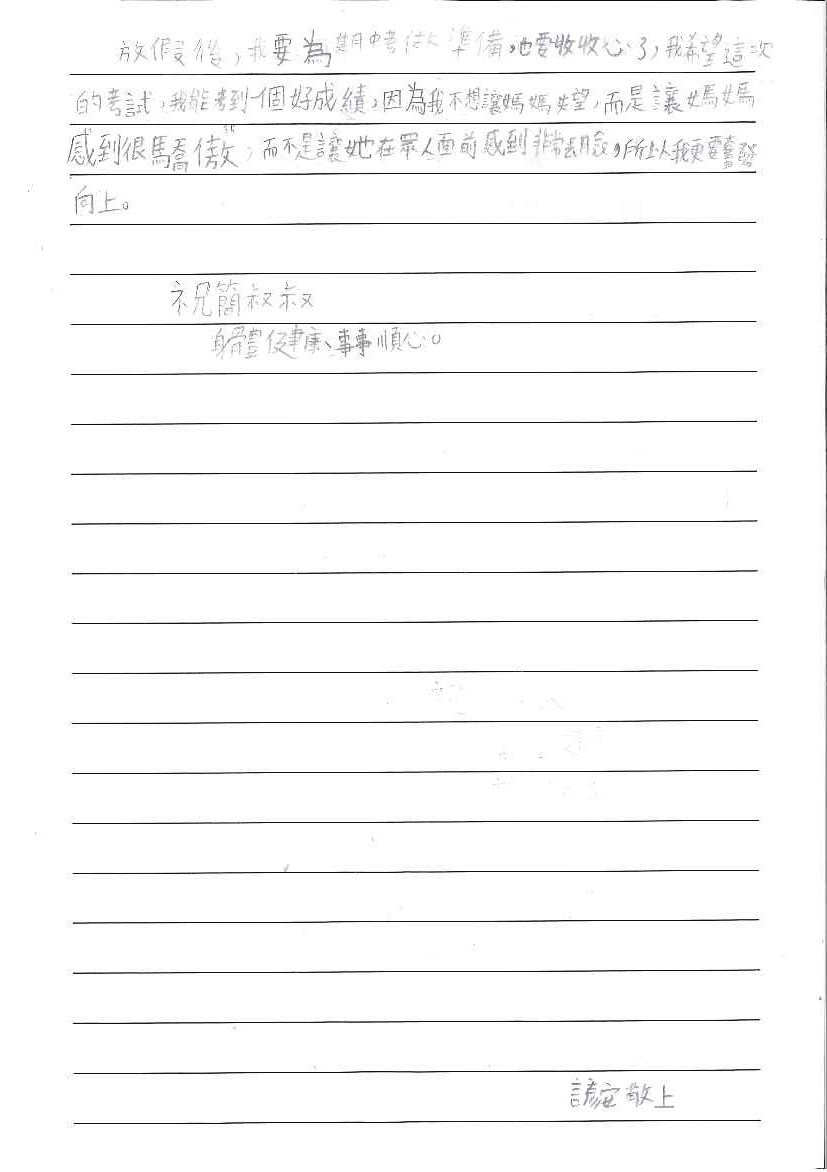 放假後，我要為期中考做準備，也要收收心了，我希望這次
的考試，我能考到一個好成績，因為我不想讓媽媽失望，而是讓媽媽
感到很驕傲，而不是讓她在眾人面前感到非常丟臉，所以我更要奮發
向上。
祝簡叔叔
身體健康、事事順心。
敬上